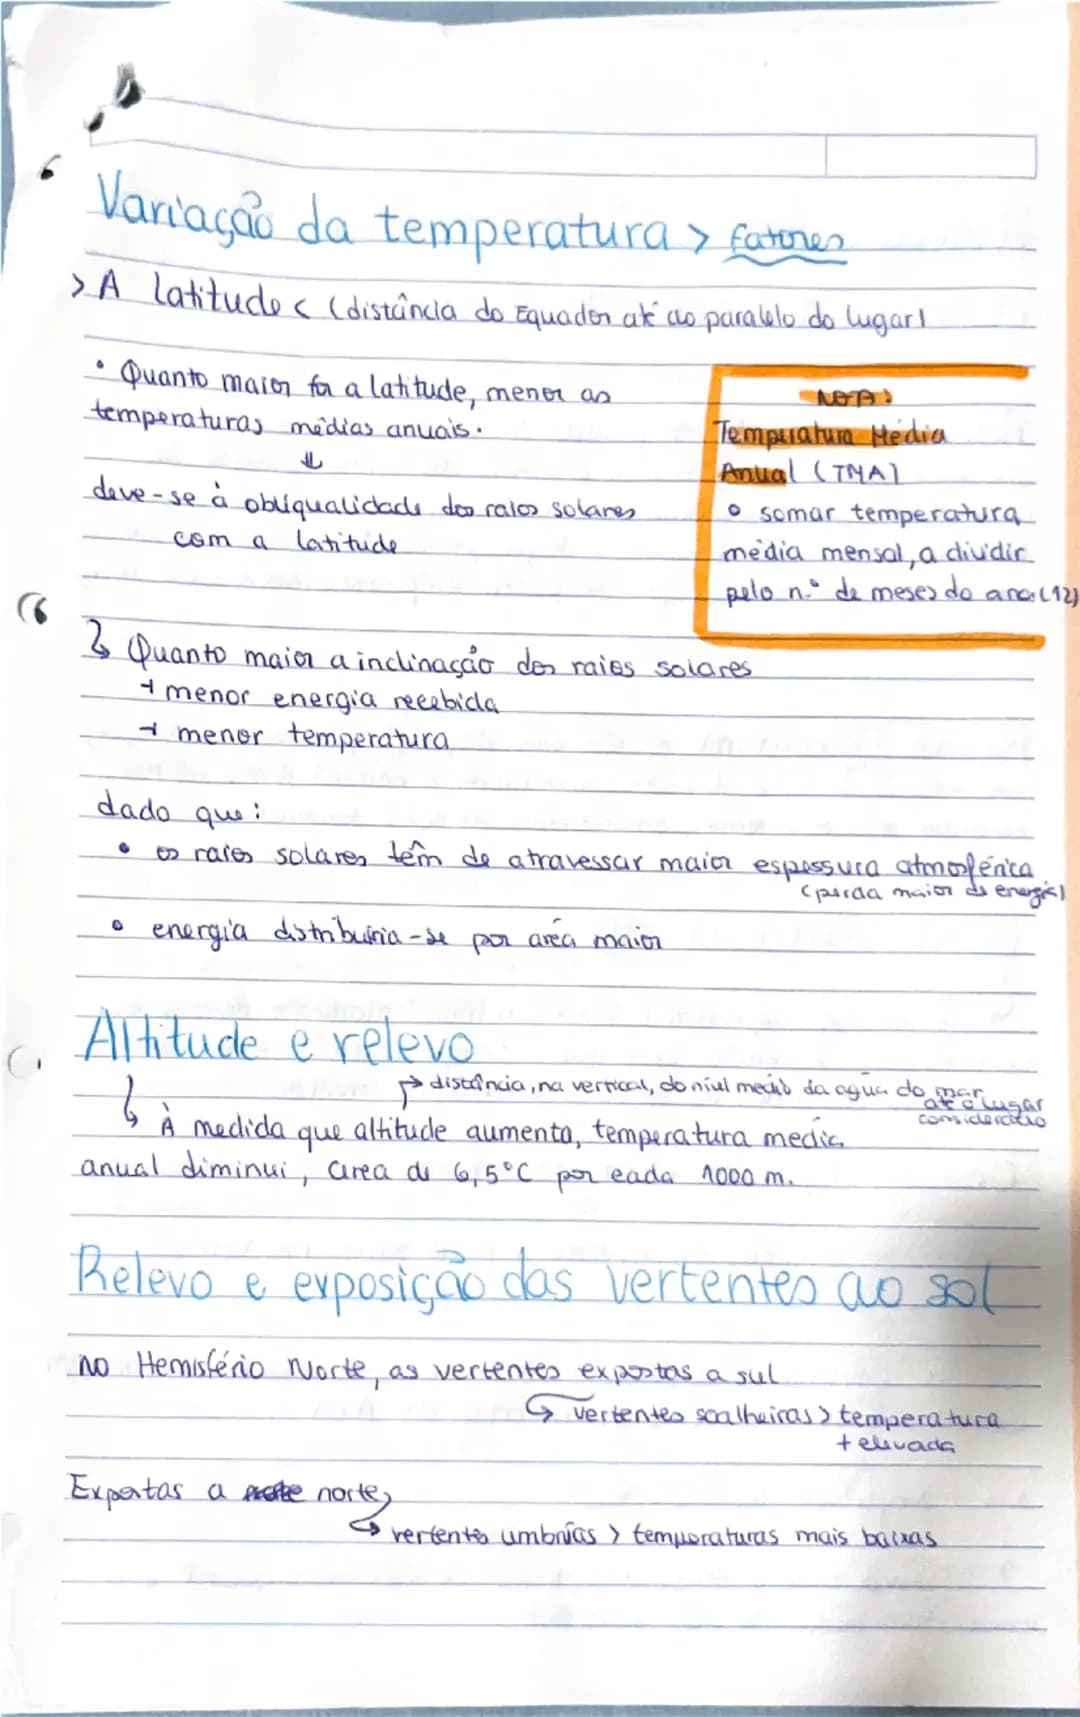 Variação da temperatura > fatores
> A latitude < (distância do Equador até ao paralelo do lugar)
• Quanto maior for a latitude, menor as
temperaturas médias anuais.
⇓
deve-se à obliqualidade dos raios solares
com a latitude
NOTA:
Temperatura Média
Anual (TMA)
• somar temperatura
média mensal, a dividir
pelo n.º de meses do ano (12)
Quanto maior a inclinação dos raios solares
→ menor energia recebida
→ menor temperatura
dado que:
• os raios solares têm de atravessar maior espessura atmosférica
(perda maior de energia)
• energia distribuiria-se por área maior
Altitude e relevo
→ distância, na vertical, do nível médio da água do mar
até o lugar
considerado
À medida que altitude aumenta, temperatura média
anual diminui, cerca de 6,5°C por cada 1000 m.
Relevo e exposição das vertentes ao sol
no Hemisfério Norte, as vertentes expostas a sul
↳ vertentes soalheiras > temperatura
+ elevada
Expostas a norte,
↳ vertentes umbrias > temperaturas mais baixas